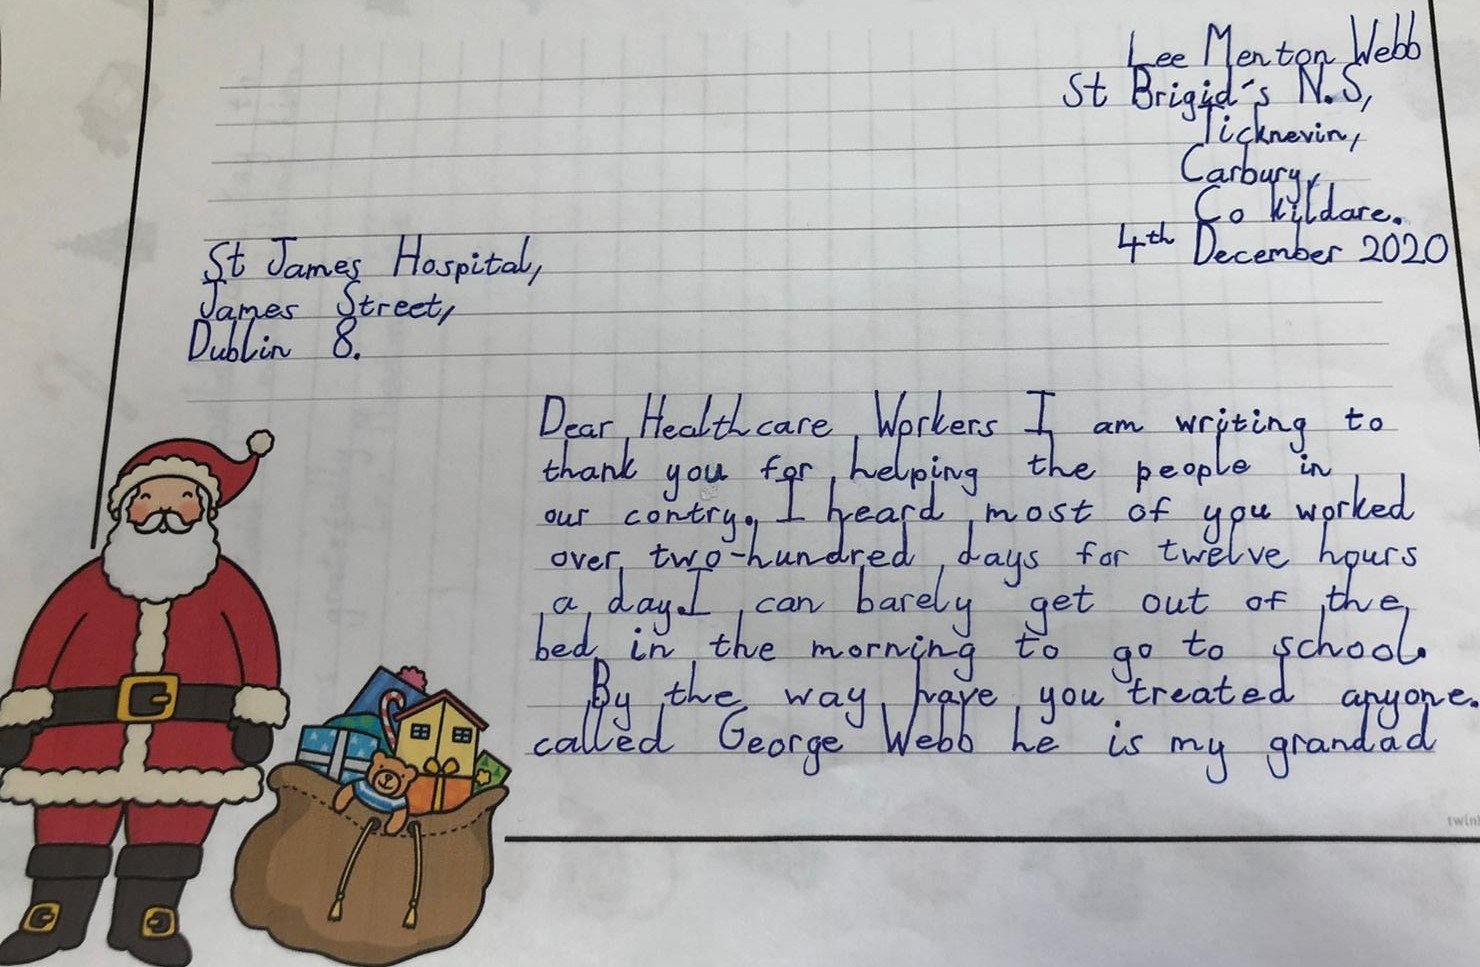 Lee Menton Webb
St Brigid's N.S,
Ticknevin,
Carbury,
Co Kildare.
4th December 2020
St James Hospital,
James Street,
Dublin 8.
Dear Healthcare Workers I am writing to
thank you for helping the people in
our contry. I heard most of you worked
over two-hundred days for twelve hours
a day. I can barely get out of the
bed in the morning to go to school.
By the way have you treated anyone.
called George Webb he is my grandad